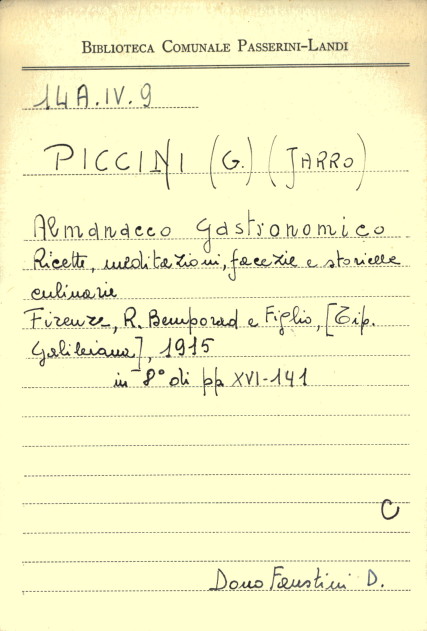 BIBLIOTECA COMUNALE PASSERINI-LANDI
14A.IV.9
PICCINI (G.) (JARRO)
Almanacco Gastronomico
Ricette, meditazioni, facezie e storielle
culinarie
Firenze, R. Bemporad e Figlio, [Tip.
Galileiana], 1915
in 8° di pp XVI-141
C
Dono Faustini D.